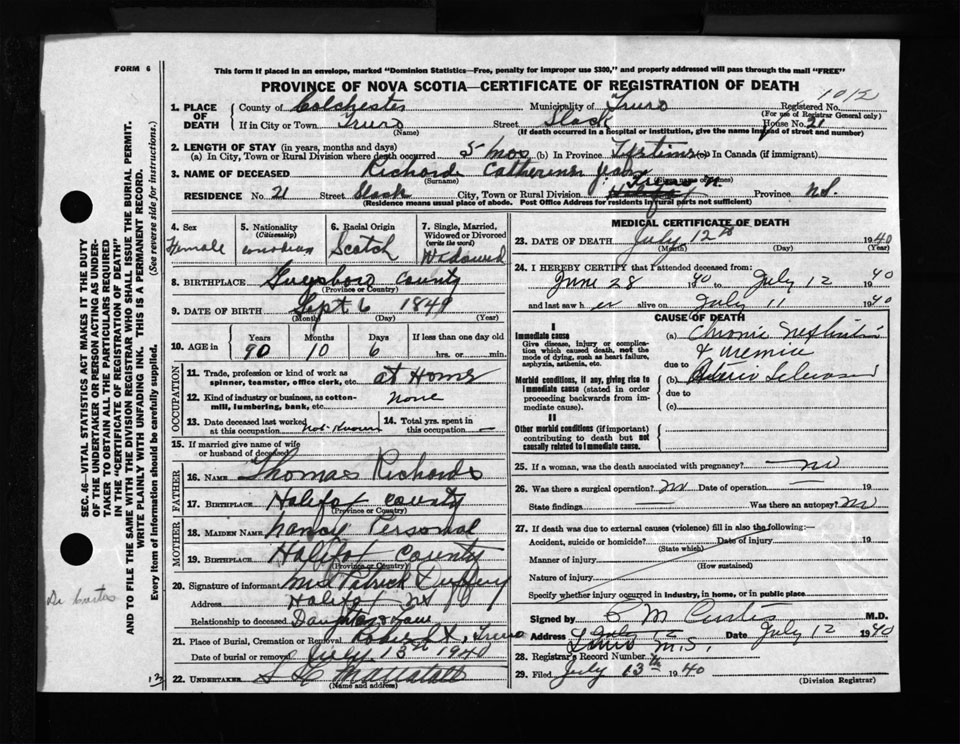 FORM 6
This form if placed in an envelope, marked "Dominion Statistics—Free, penalty for improper use $300," and properly addressed will pass through the mail "FREE"
PROVINCE OF NOVA SCOTIA—CERTIFICATE OF REGISTRATION OF DEATH
1012
1. PLACE OF DEATH County of Colchester Municipality of Truro Registered No.
(For use of Registrar General only)
If in City or Town Truro Street Slack House No. 21
(Name) (If death occurred in a hospital or institution, give the name instead of street and number)
2. LENGTH OF STAY (in years, months and days)
(a) In City, Town or Rural Division where death occurred 5 mos (b) In Province Lifetime (c) In Canada (if immigrant)
3. NAME OF DECEASED Richards Catherine Jean
(Surname)
RESIDENCE No. 21 Street Slack City, Town or Rural Division Province N.S.
(Residence means usual place of abode. Post Office Address for residents in rural parts not sufficient)
4. Sex 5. Nationality (Citizenship) 6. Racial Origin 7. Single, Married, Widowed or Divorced (write the word)
Female Canadian Scotch Widowed
8. BIRTHPLACE Guysboro County
(Province or Country)
9. DATE OF BIRTH Sept 6 1849
(Month) (Day) (Year)
10. AGE in Years Months Days If less than one day old
90 10 6 hrs. or min.
OCCUPATION
11. Trade, profession or kind of work as spinner, teamster, office clerk, etc. at Home
12. Kind of industry or business, as cotton-mill, lumbering, bank, etc. none
13. Date deceased last worked at this occupation not known 14. Total yrs. spent in this occupation —
15. If married give name of wife or husband of deceased
FATHER
16. NAME Thomas Richards
17. BIRTHPLACE Halifax County
(Province or Country)
MOTHER
18. MAIDEN NAME Nancy
19. BIRTHPLACE Halifax County
(Province or Country)
20. Signature of informant Mrs Patrick
Address Halifax NS
Relationship to deceased Daughter
21. Place of Burial, Cremation or Removal Truro
Date of burial or removal July 13th 1940
22. UNDERTAKER
(Name and address)
MEDICAL CERTIFICATE OF DEATH
23. DATE OF DEATH July 12th 1940
(Month) (Day) (Year)
24. I HEREBY CERTIFY that I attended deceased from:
June 28 1940 to July 12 1940
and last saw her alive on July 11 1940
CAUSE OF DEATH
I
Immediate cause
Give disease, injury or complication which caused death, not the mode of dying, such as heart failure, asphyxia, asthenia, etc.
(a) Chronic Nephritis
& Uremia
due to
Morbid conditions, if any, giving rise to immediate cause (stated in order proceeding backwards from immediate cause).
(b)
due to
(c)
II
Other morbid conditions (if important) contributing to death but not causally related to immediate cause.
25. If a woman, was the death associated with pregnancy? no
26. Was there a surgical operation? no Date of operation — 19
State findings Was there an autopsy? no
27. If death was due to external causes (violence) fill in also the following:—
Accident, suicide or homicide? Date of injury 19
(State which)
Manner of injury
(How sustained)
Nature of injury
Specify whether injury occurred in industry, in home, or in public place
Signed by M Curtis M.D.
Address Truro N.S. Date July 12 1940
28. Registrar's Record Number
29. Filed July 13th 1940
(Division Registrar)
SEC. 46—VITAL STATISTICS ACT MAKES IT THE DUTY
OF THE UNDERTAKER OR PERSON ACTING AS UNDER-
TAKER TO OBTAIN ALL THE PARTICULARS REQUIRED
IN THE "CERTIFICATE OF REGISTRATION OF DEATH"
AND TO FILE THE SAME WITH THE DIVISION REGISTRAR WHO SHALL ISSUE THE BURIAL PERMIT.
WRITE PLAINLY WITH UNFADING INK. THIS IS A PERMANENT RECORD.
Every item of information should be carefully supplied. (See reverse side for instructions.)